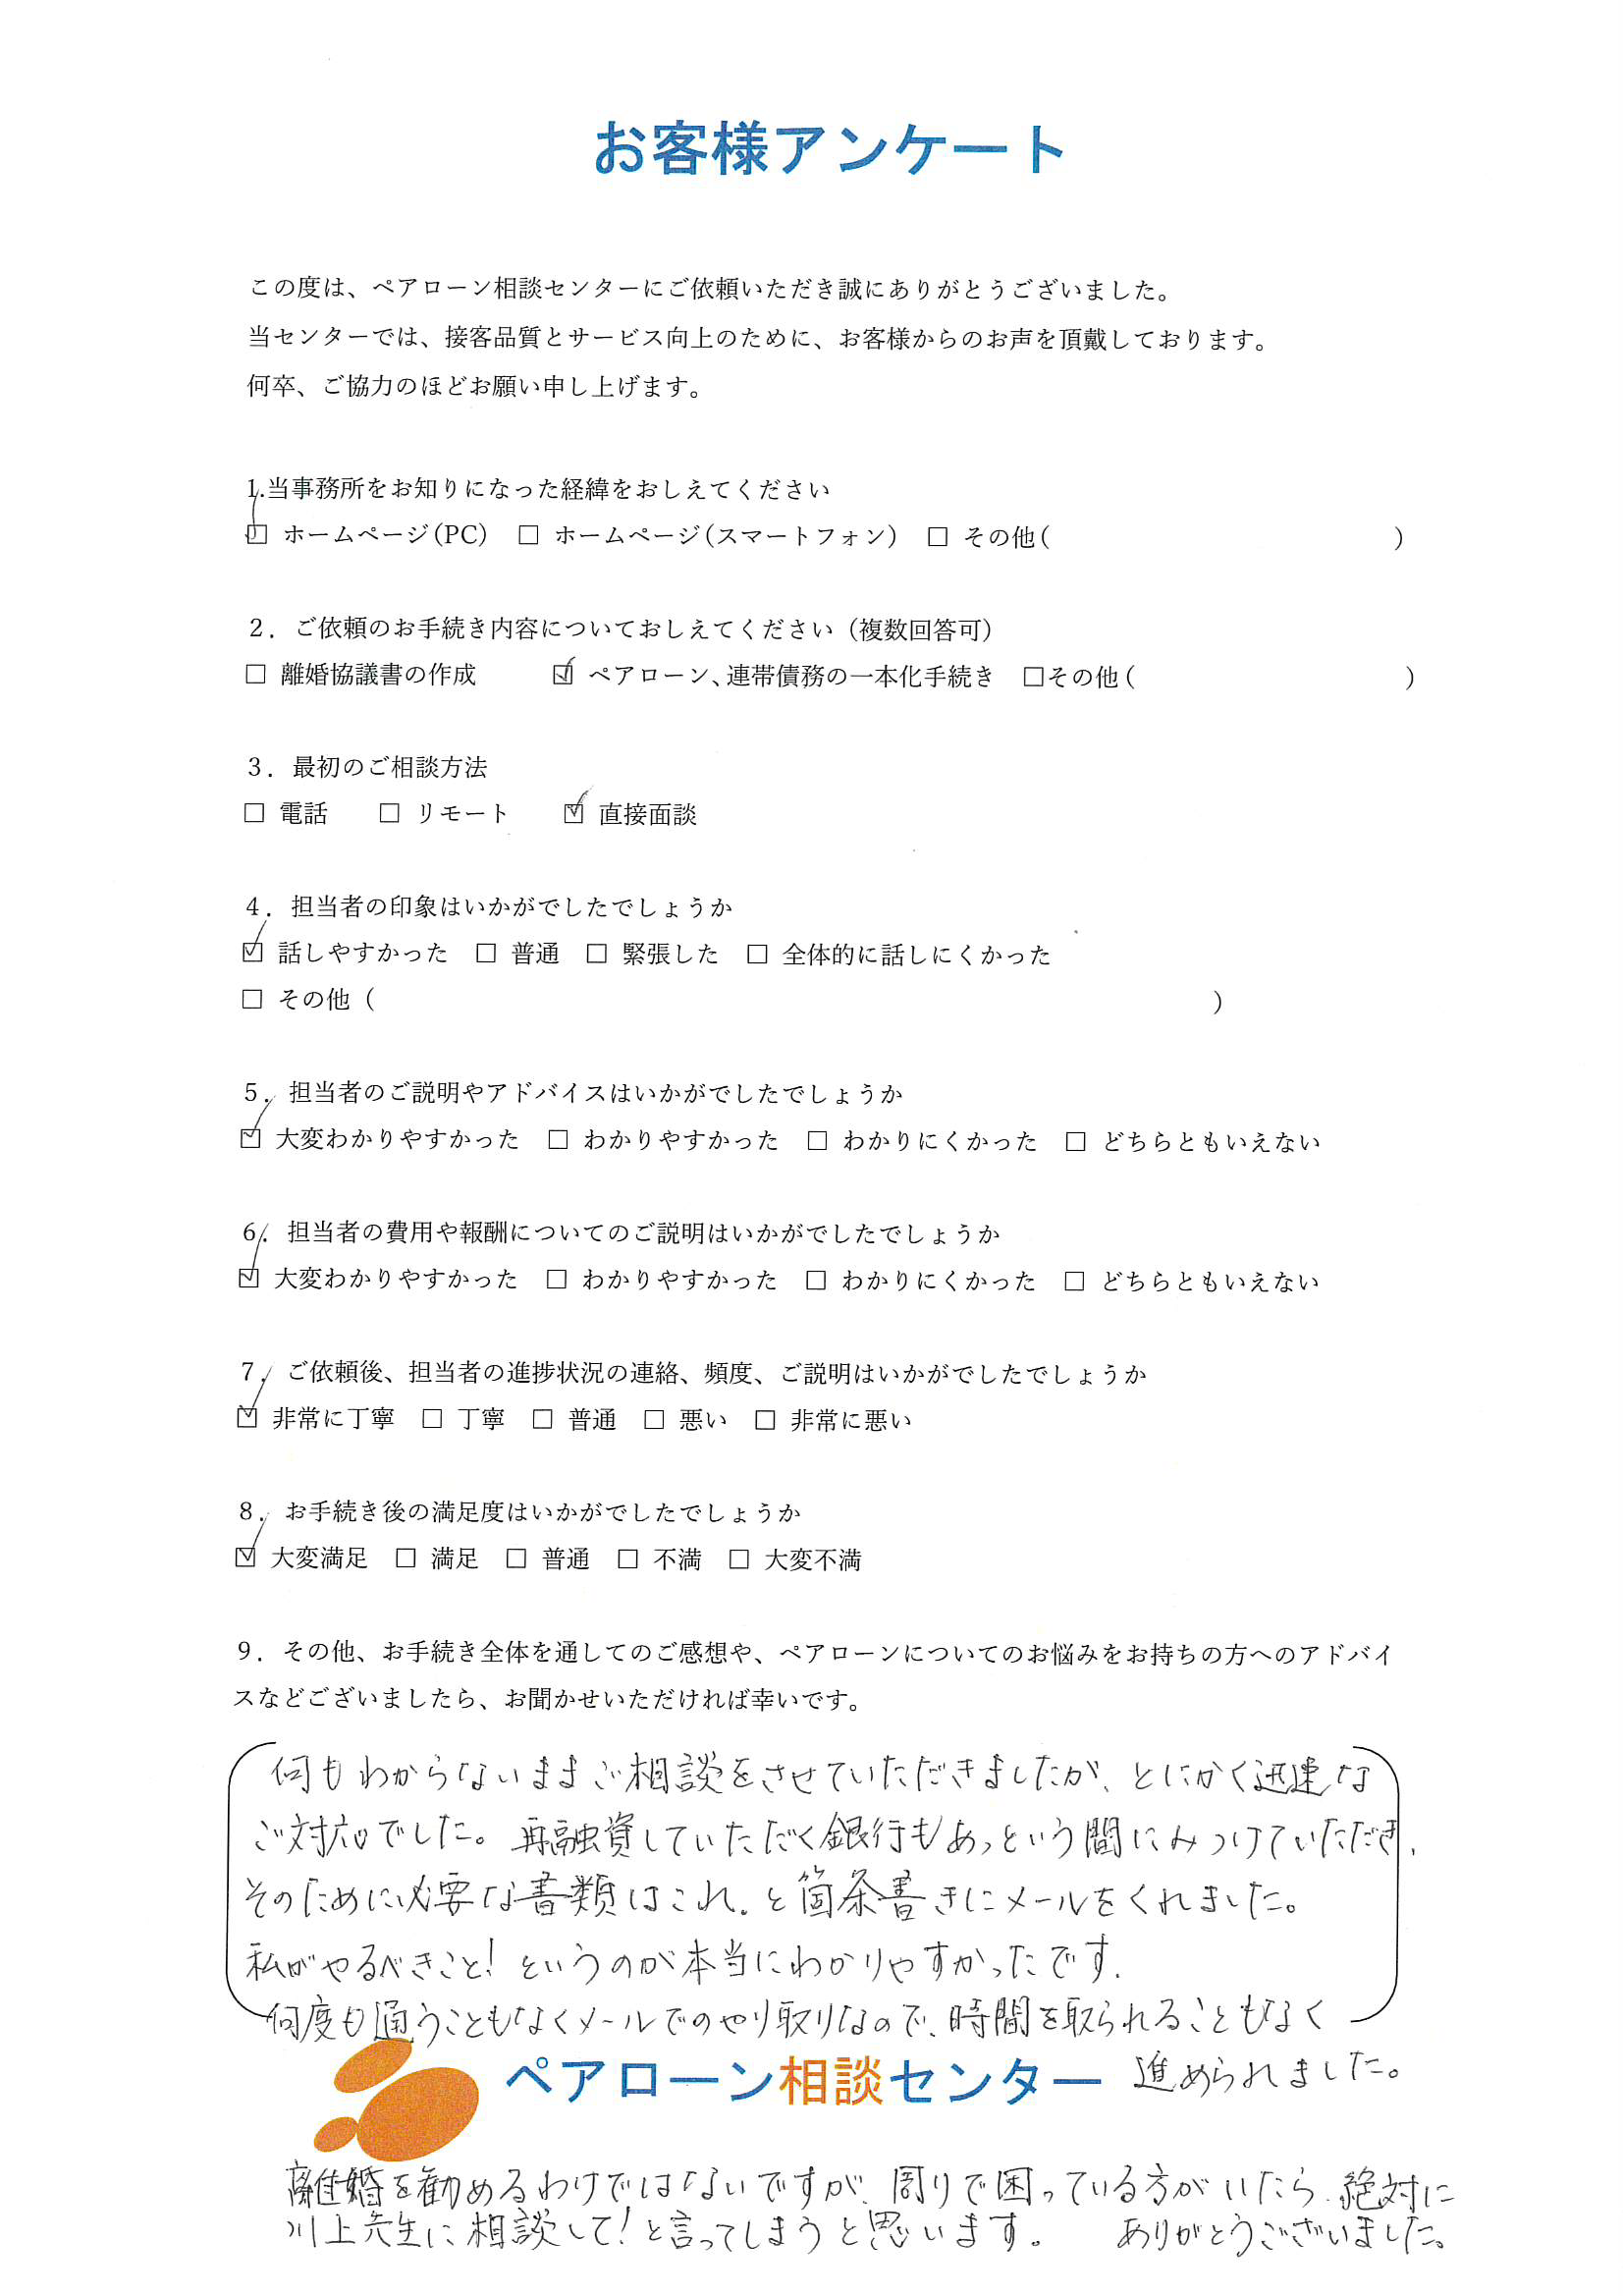 お客様アンケート
この度は、ペアローン相談センターにご依頼いただき誠にありがとうございました。
当センターでは、接客品質とサービス向上のために、お客様からのお声を頂戴しております。
何卒、ご協力のほどお願い申し上げます。
1.当事務所をお知りになった経緯をおしえてください
☑ ホームページ(PC) □ ホームページ(スマートフォン) □ その他( )
2．ご依頼のお手続き内容についておしえてください（複数回答可）
□ 離婚協議書の作成 ☑ ペアローン、連帯債務の一本化手続き □その他( )
3．最初のご相談方法
□ 電話 □ リモート ☑ 直接面談
4．担当者の印象はいかがでしたでしょうか
☑ 話しやすかった □ 普通 □ 緊張した □ 全体的に話しにくかった
□ その他（ ）
5．担当者のご説明やアドバイスはいかがでしたでしょうか
☑ 大変わかりやすかった □ わかりやすかった □ わかりにくかった □ どちらともいえない
6．担当者の費用や報酬についてのご説明はいかがでしたでしょうか
☑ 大変わかりやすかった □ わかりやすかった □ わかりにくかった □ どちらともいえない
7．ご依頼後、担当者の進捗状況の連絡、頻度、ご説明はいかがでしたでしょうか
☑ 非常に丁寧 □ 丁寧 □ 普通 □ 悪い □ 非常に悪い
8．お手続き後の満足度はいかがでしたでしょうか
☑ 大変満足 □ 満足 □ 普通 □ 不満 □ 大変不満
9．その他、お手続き全体を通してのご感想や、ペアローンについてのお悩みをお持ちの方へのアドバイ
スなどございましたら、お聞かせいただければ幸いです。
何もわからないままご相談をさせていただきましたが、とにかく迅速な
ご対応でした。再融資していただく銀行もあっという間にみつけていただき、
そのために必要な書類はこれ。と箇条書きにメールをくれました。
私がやるべきこと！というのが本当にわかりやすかったです。
何度も通うこともなくメールでのやり取りなので、時間を取られることもなく
進められました。
ペアローン相談センター
離婚を勧めるわけではないですが、周りで困っている方がいたら、絶対に
川上先生に相談して！と言ってしまうと思います。 ありがとうございました。